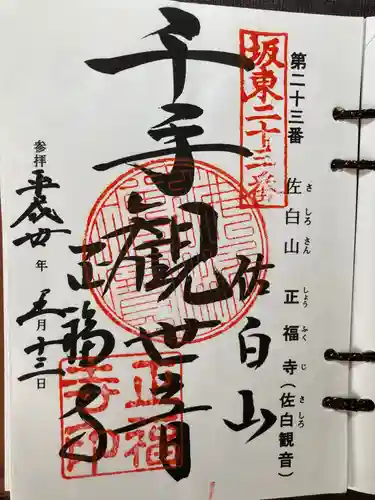 第二十三番
佐白山 正福寺(佐白観音)
さしろさん しょうふくじ さしろ
坂東二十三番
佐白山
千手観世音
正福寺
正福寺印
参拝 平成廿年五月十三日